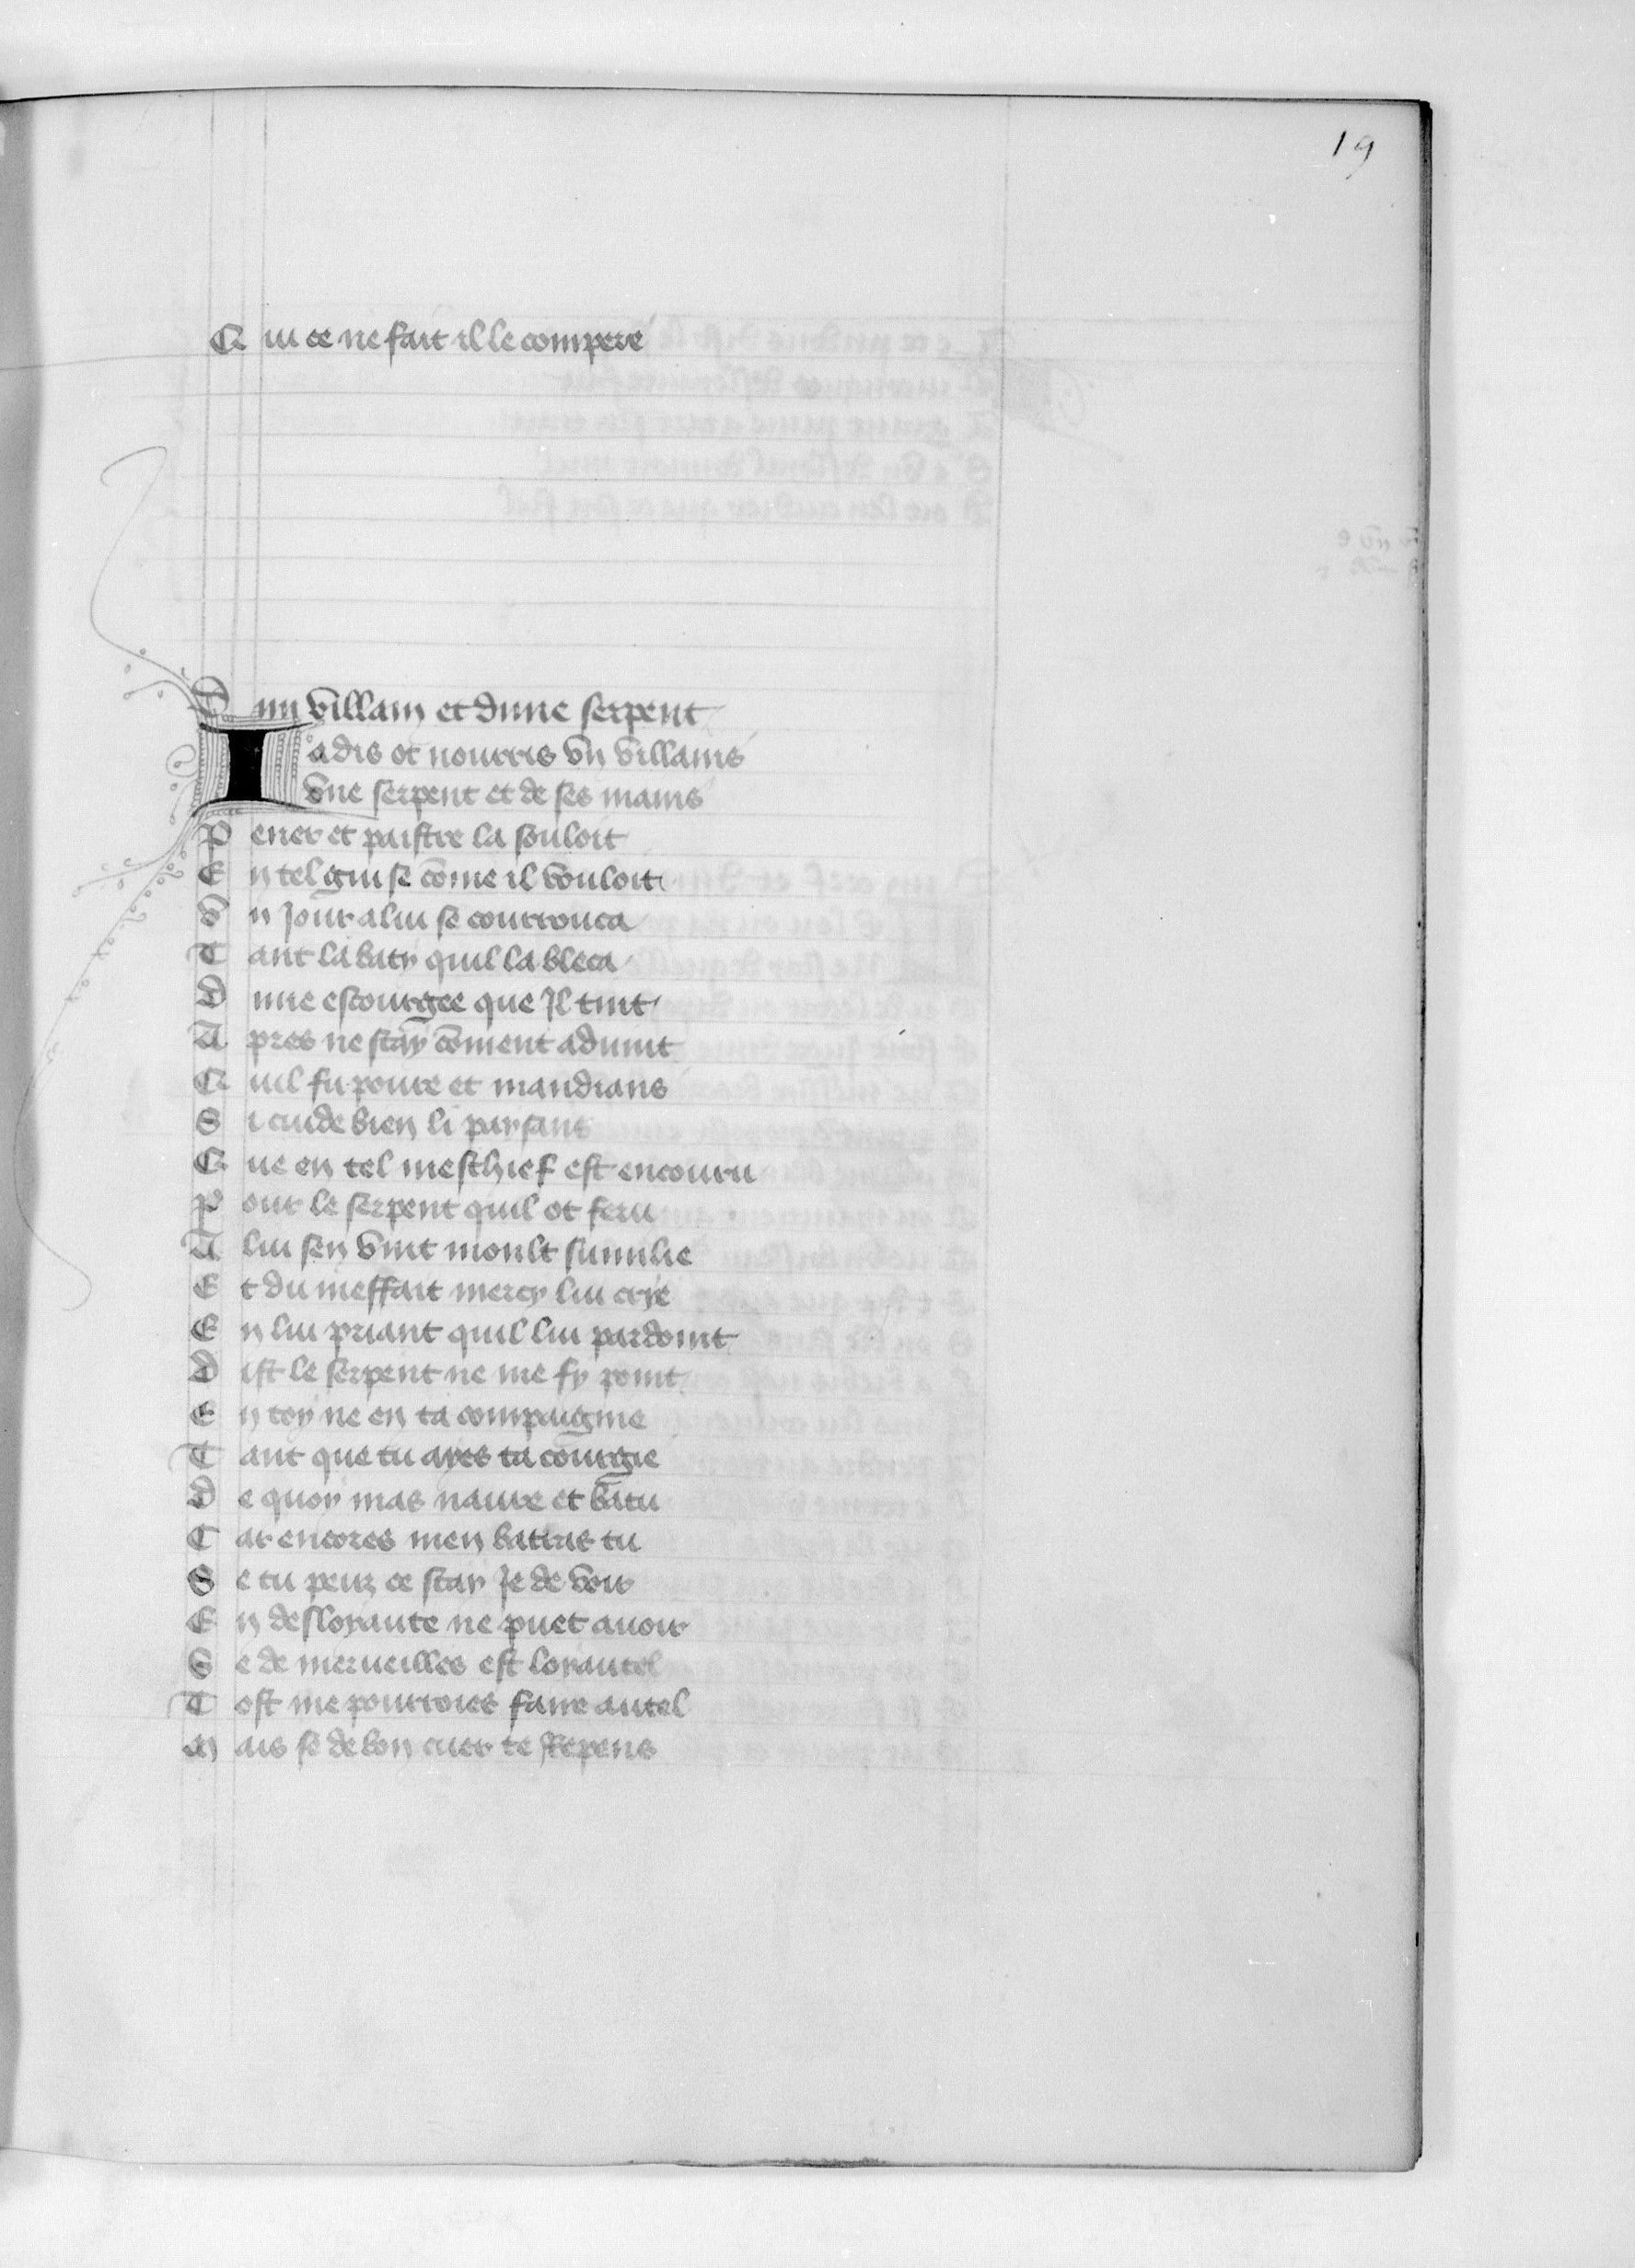 19
Qui ce ne fait il le compere
Dun villain et dune serpent
Iadis ot nourris vn villains
vne serpent et de ses mains
Pener et paistre la souloit
En tel guise cõme il vouloit
Vn Jour a lui se courrouca
Tant la baty quil la bleca
Dune escourgee que Il tint
Apres ne scay cõment aduint
Quil fu poure et mandians
Si cuide bien li paysans
Que en tel meschief est encouru
Pour le serpent quil ot feru
A lui sen vint moult sumilie
Et du meffait mercy lui crie
En lui priant quil lui pardoint
Dist le serpent ne me fy point
En toy ne en ta compaignie
Tant que tu ayes ta courgie
De quoy mas naure et batu
Car encores men batras tu
Se tu peuz ce scay Je de voir
En desloyaute ne puet auoir
Se de merueilles est loyautel
Tost me pourroies faire autel
Mais se de bon cuer te Repens